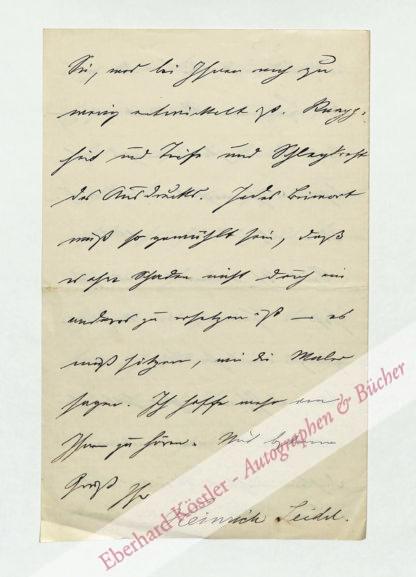 Sie, was bei Ihnen noch zu
wenig entwickelt ist. Knapp-
heit und Tiefe und Schlagkraft
des Ausdrucks. Jedes Beiwort
muß so gewählt sein, daß
es ohne Schaden nicht durch ein
anderes zu ersetzen ist — es
muß sitzen, wie die Maler
sagen. Ich hoffe mehr von
Ihnen zu hören. Mit
Gruß Ihr
Heinrich Seidel.
Eberhard Köstler - Autographen & Bücher